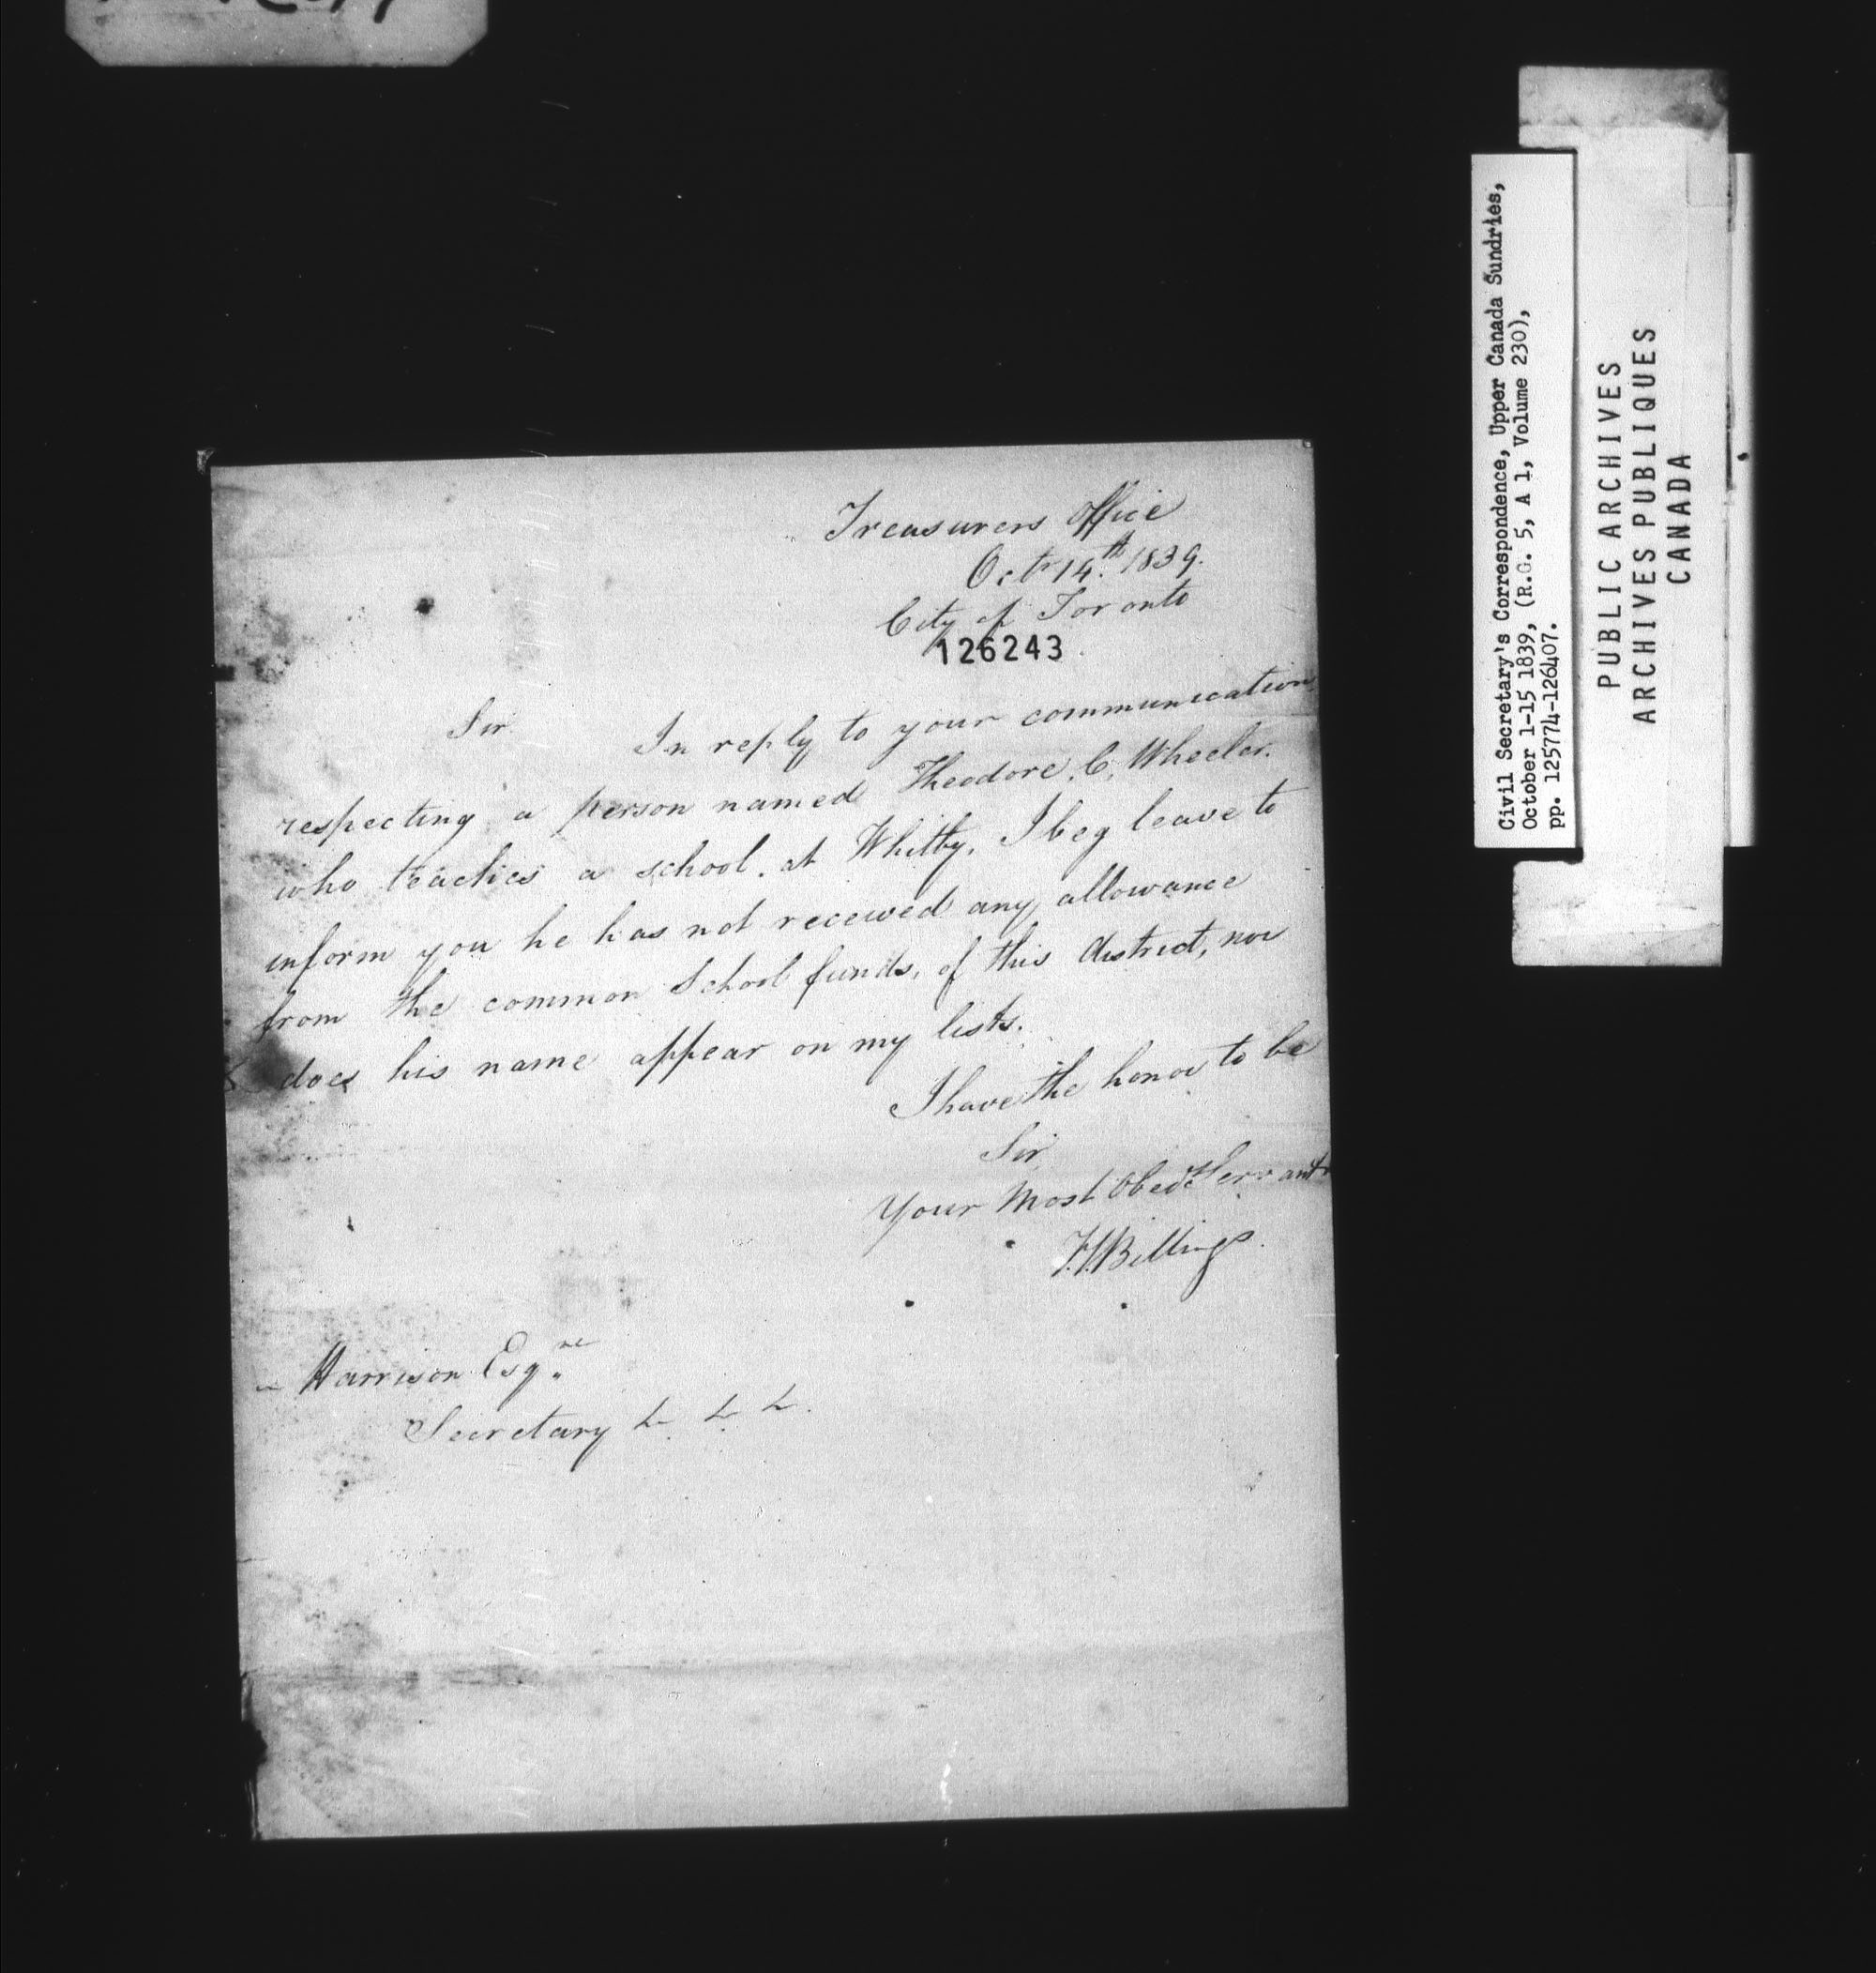 Treasurers Office
Octr 14th 1839.
City of Toronto
126243
Sir
In reply to your communication
respecting a person named Theodore. C. Wheeler.
who teaches a school. at Whitby. I beg leave to
inform you he has not received any allowance
from the common School funds, of this district, nor
does his name appear on my lists.
I have the honor to be
Sir
Your Most Obedt Servant
Billings.
Harrison Esqre
Secretary
Civil Secretary's Correspondence, Upper Canada Sundries,
October 1-15 1839, (R.G. 5, A 1, Volume 230),
pp. 125774-126407.
PUBLIC ARCHIVES
ARCHIVES PUBLIQUES
CANADA